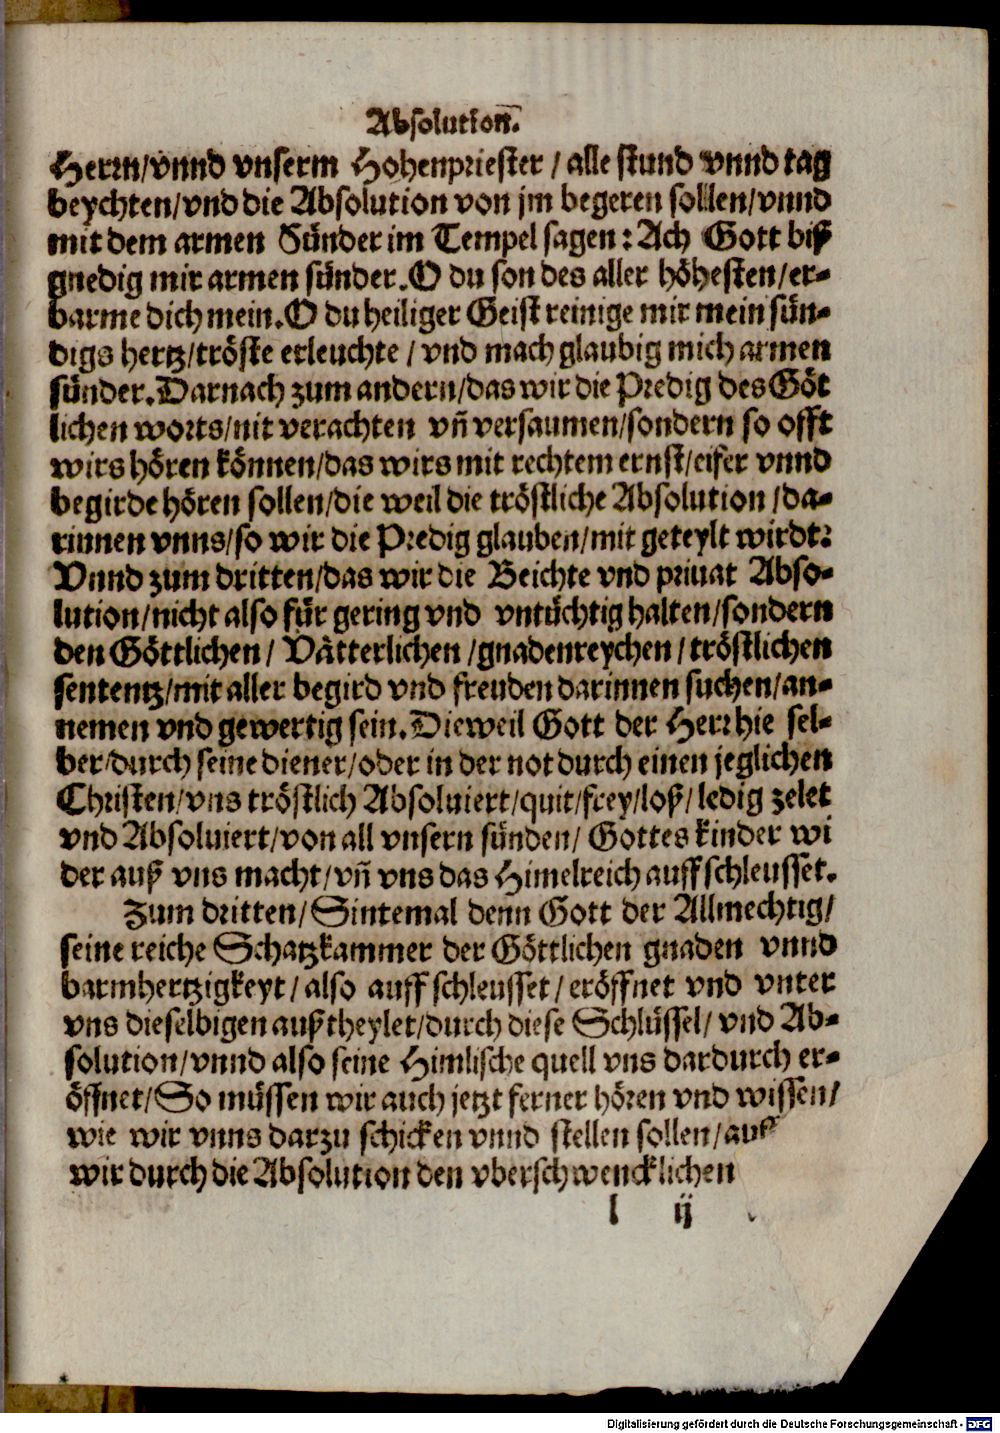 Absolution.
Herrn/vnnd vnserm Hohenpriester / alle stund vnnd tag
beychten/vnd die Absolution von jm begeren sollen/vnnd
mit dem armen Sünder im Tempel sagen: Ach Gott biß
gnedig mir armen sünder. O du son des aller höhesten/er-
barme dich mein. O du heiliger Geist reinige mir mein sün-
digs hertz/tröste erleuchte / vnd mach glaubig mich armen
sünder. Darnach zum andern/das wir die Predig des Göt
lichen worts/nit verachten vñ versaumen/sondern so offt
wirs hören können/das wirs mit rechtem ernst/eifer vnnd
begirde hören sollen/die weil die tröstliche Absolution /da-
rinnen vnns/so wir die Predig glauben/mit geteylt wirdt:
Vnnd zum dritten/das wir die Beichte vnd priuat Abso-
lution/nicht also für gering vnd vntüchtig halten/sondern
den Göttlichen / Vätterlichen /gnadenreychen / tröstlichen
sententz/mit aller begird vnd freuden darinnen suchen/an-
nemen vnd gewertig sein. Dieweil Gott der Herr hie sel-
ber/durch seine diener/oder in der not durch einen jeglichen
Christen/vns tröstlich Absoluiert/quit/frey/loß/ledig zelet
vnd Absoluiert/von all vnsern sünden/ Gottes kinder wi
der auß vns macht/vñ vns das Himelreich auffschleusset.
Zum dritten/Sintemal denn Gott der Allmechtig/
seine reiche Schatzkammer der Göttlichen gnaden vnnd
barmhertzigkeyt / also auff schleusset / eröffnet vnd vnter
vns dieselbigen außtheylet/durch diese Schlüssel/ vnd Ab-
solution/vnnd also seine Himlische quell vns dardurch er-
öffnet/So müssen wir auch jetzt ferner hören vnd wissen/
wie wir vnns darzu schicken vnnd stellen sollen/auß
wir durch die Absolution den vberschwencklichen
l ij
Digitalisierung gefördert durch die Deutsche Forschungsgemeinschaft - DFG